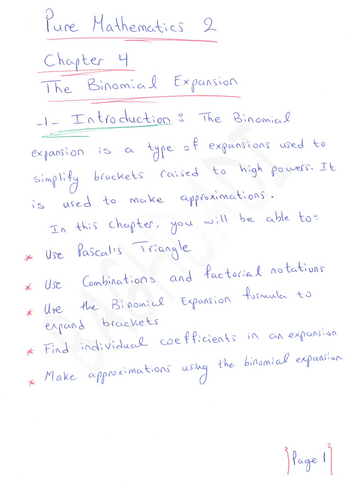 Pure Mathematics 2
Chapter 4
The Binomial Expansion
-1- Introduction: The Binomial
expansion is a type of expansions used to
simplify brackets raised to high powers. It
is used to make approximations.
In this chapter, you will be able to:
* Use Pascal's Triangle
* Use Combinations and factorial notations
* Use the Binomial Expansion formula to
expand brackets
* Find individual coefficients in an expansion
* Make approximations using the binomial expansion
Page 1